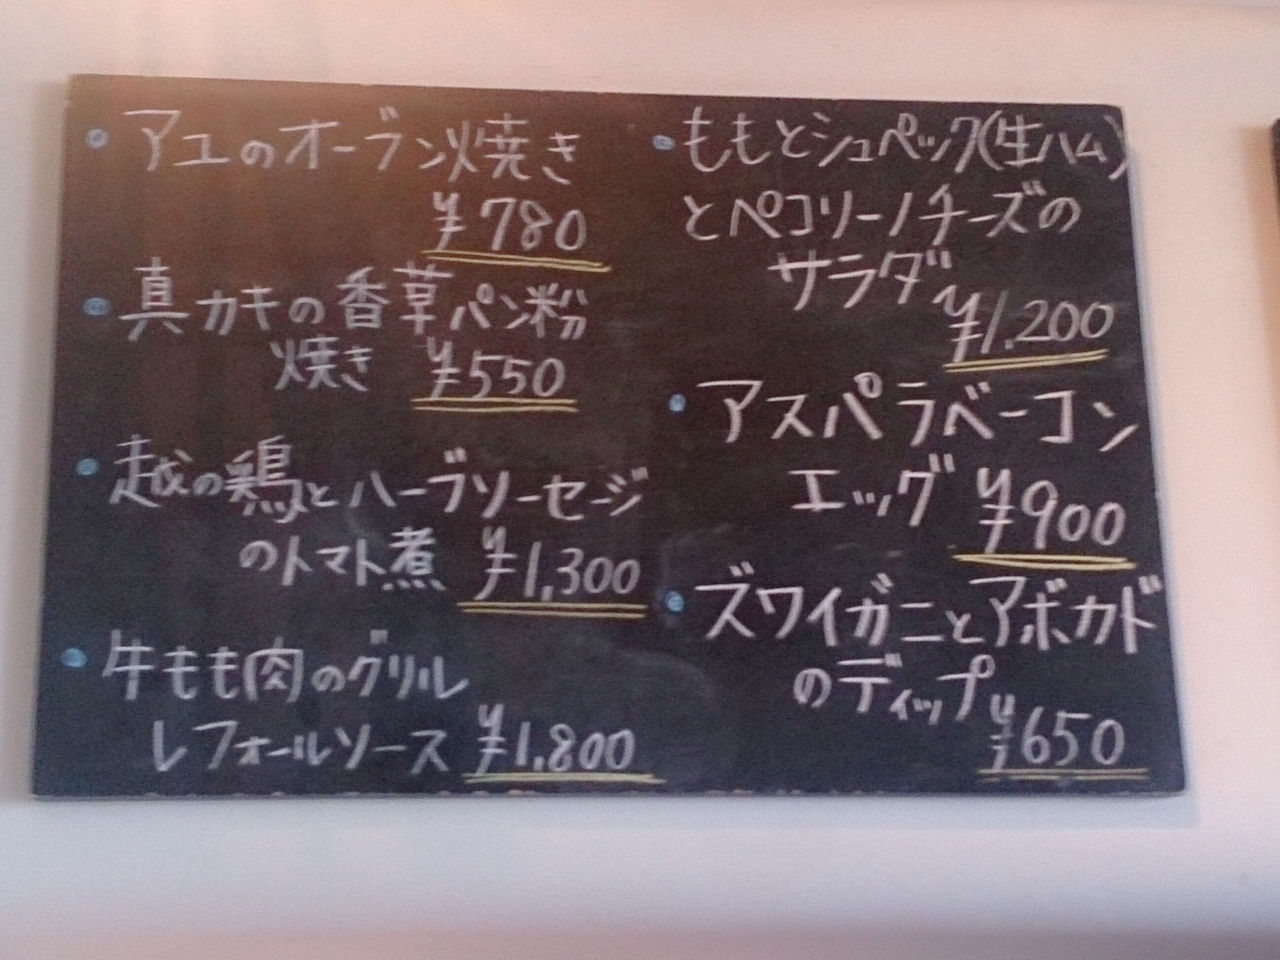 アユのオーブン焼き
¥780
真カキの香草パン粉
焼き ¥550
越の鶏とハーブソーセージ
のトマト煮 ¥1,300
牛もも肉のグリル
レフォールソース ¥1,800
ももとシュペック(生ハム)
とペコリーノチーズの
サラダ ¥1,200
アスパラベーコン
エッグ ¥900
ズワイガニとアボカド
のディップ ¥650